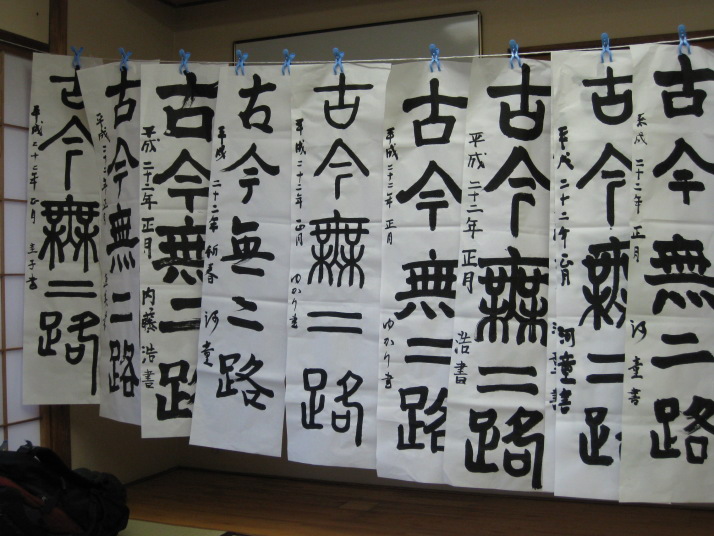 古今無二路
平成二十二年 正月 河童書
古今無二路
平成二十二年 正月 河童書
古今無二路
平成二十二年 正月 浩書
古今無二路
平成二十二年 正月 ゆかり書
古今無二路
平成二十二年 正月 ゆかり書
古今無二路
平成二十二年 新春 河童
古今無二路
平成二十二年 正月 内藤浩書
古今無二路
平成二十二年 正月
古今無二路
平成二十二年 正月 圭子書